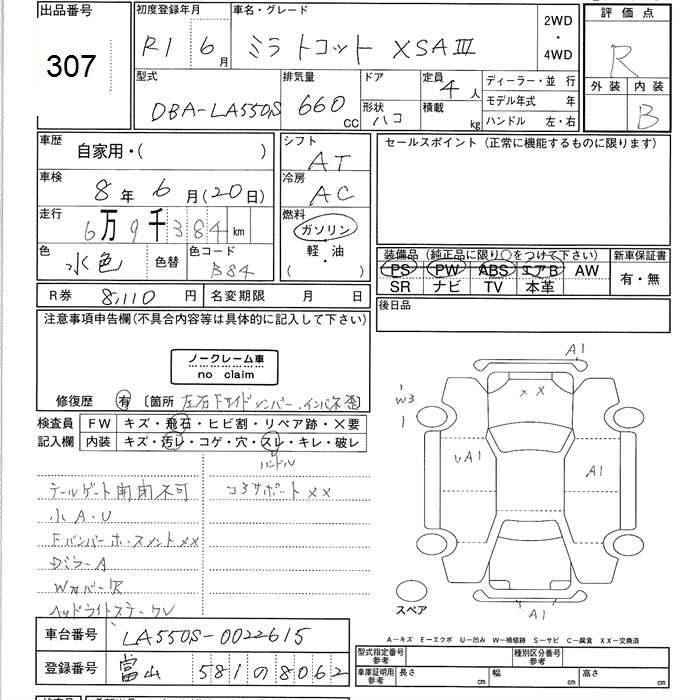 出品番号
307
初度登録年月
R1 6月
車名・グレード
ミラ トコット XSAⅢ
2WD
・
4WD
評価点
R
外装 内装
B
型式
DBA-LA550S
排気量
660 CC
ドア
形状
ハコ
定員
4人
積載
kg
ディーラー・並行
モデル年式 年
ハンドル 左・右
車歴
自家用・( )
車検
8年 6月(20日)
走行
6万9千384km
色
水色
色替
色コード
B84
シフト
AT
冷房
AC
燃料
ガソリン
軽・油
( )
セールスポイント (正常に機能するものに限ります)
装備品 (純正品に限り○をつけて下さい)
PS PW ABS エアB AW
SR ナビ TV 本革
新車保証書
有・無
R券 8,110円
名変期限 月 日
後日品
注意事項申告欄(不具合内容等は具体的に記入して下さい)
ノークレーム車
no claim
修復歴 有 〔箇所 左右Fサイドメンバー、インパネ歪
検査員
記入欄
FW キズ・飛石・ヒビ割・リペア跡・×要
内装 キズ・汚レ・コゲ・穴・スレ・キレ・破レ
ハンドル
テールゲート開閉不可
コアサポートXX
小A・U
FバンパーホースメントXX
DミラーA
Wカバー欠
A1
W3
X X
A1
A1
A1
スペア
A―キズ E―エクボ U―凹み W―補修跡 S―サビ C―腐食 XX―交換済
車台番号 LA550S-0022615
登録番号 富山 581の8062
型式指定番号
参考
種別区分番号
参考
車庫証明用
参考
長さ cm 幅 cm 高さ cm